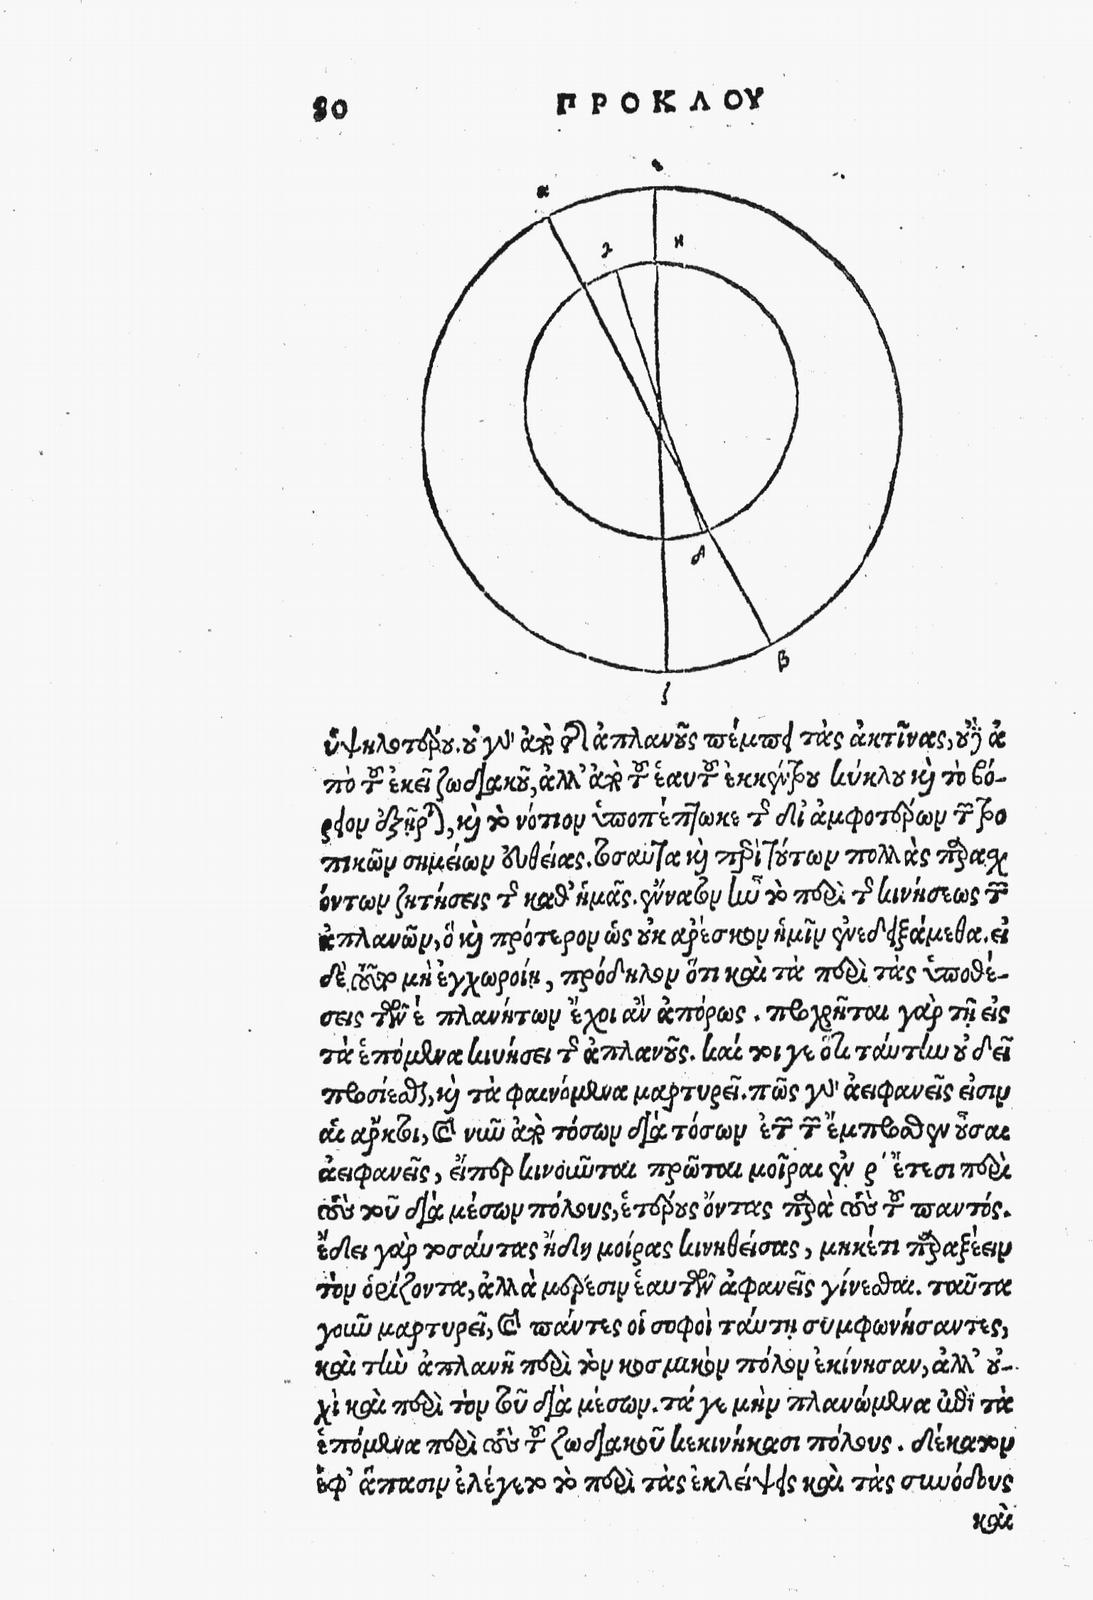 80 ΠΡΟΚΛΟΥ
α ε
γ η
δ
β
ζ
ὑψηλοτέρου. οὐ γὰρ ἀπὸ τῆς ἀπλανοῦς πέμπει τὰς ἀκτῖνας, οὐδὲ ἀ
πὸ τοῦ ἐκεῖ ζωδιακοῦ, ἀλλ' ἀπὸ τοῦ ἑαυτοῦ ἐκκέντρου κύκλου καὶ τὸ βό-
ρειον καὶ τὸ νότιον ὑποπέπτωκε τῆς δι' ἀμφοτέρων τῶν τρο
πικῶν σημείων εὐθείας. τοσαῦτα καὶ περὶ τούτων πολλὰς παρασχ
όντων ζητήσεις τοῖς καθ' ἡμᾶς. ἔννατον ἦν τὸ περὶ τῆς κινήσεως τῶν
ἀπλανῶν, ὃ καὶ πρότερον ὡς οὐκ ἀρέσκον ἡμῖν ἐνεδειξάμεθα. εἰ
δὲ τοῦτο μὴ ἐγχωροίη, πρόδηλον ὅτι καὶ τὰ περὶ τὰς ὑποθέ-
σεις τῶν ε πλανήτων ἔχοι ἂν ἀπόρως. προσχρῆται γὰρ τῇ εἰς
τὰ ἑπόμενα κινήσει τῆς ἀπλανοῦς. καί τοι γε ὅτι ταύτην οὐ δεῖ
προσίεσθαι, καὶ τὰ φαινόμενα μαρτυρεῖ. πῶς γὰρ ἀειφανεῖς εἰσιν
αἱ ἄρκτοι, καὶ νῦν ἀπὸ τόσων διὰ τόσων ἐτῶν τῶν ἔμπροσθεν οὖσαι
ἀειφανεῖς, εἴπερ κινοῦνται πρῶται μοῖραι ἐν ρ' ἔτεσι περὶ
τοὺς τοῦ διὰ μέσων πόλους, ἑτέρους ὄντας παρὰ τοὺς τοῦ παντός.
ἔδει γὰρ τοσαύτας ἤδη μοίρας κινηθείσας, μηκέτι παραξέειν
τὸν ὁρίζοντα, ἀλλὰ μέρεσιν ἑαυτῶν ἀφανεῖς γίνεσθαι. ταῦτα
γοῦν μαρτυρεῖ, καὶ πάντες οἱ σοφοὶ ταύτῃ συμφωνήσαντες,
καὶ τὴν ἀπλανῆ περὶ τὸν κοσμικὸν πόλον ἐκίνησαν, ἀλλ' οὐ-
χὶ καὶ περὶ τὸν τοῦ διὰ μέσων. τά γε μὴν πλανώμενα ἐπὶ τὰ
ἑπόμενα περὶ τοὺς τοῦ ζωδιακοῦ κεκινήκασι πόλους. δέκατον
ἐφ' ἅπασιν ἐλέγετο τὸ περὶ τὰς ἐκλείψεις καὶ τὰς συνόδους
καὶ